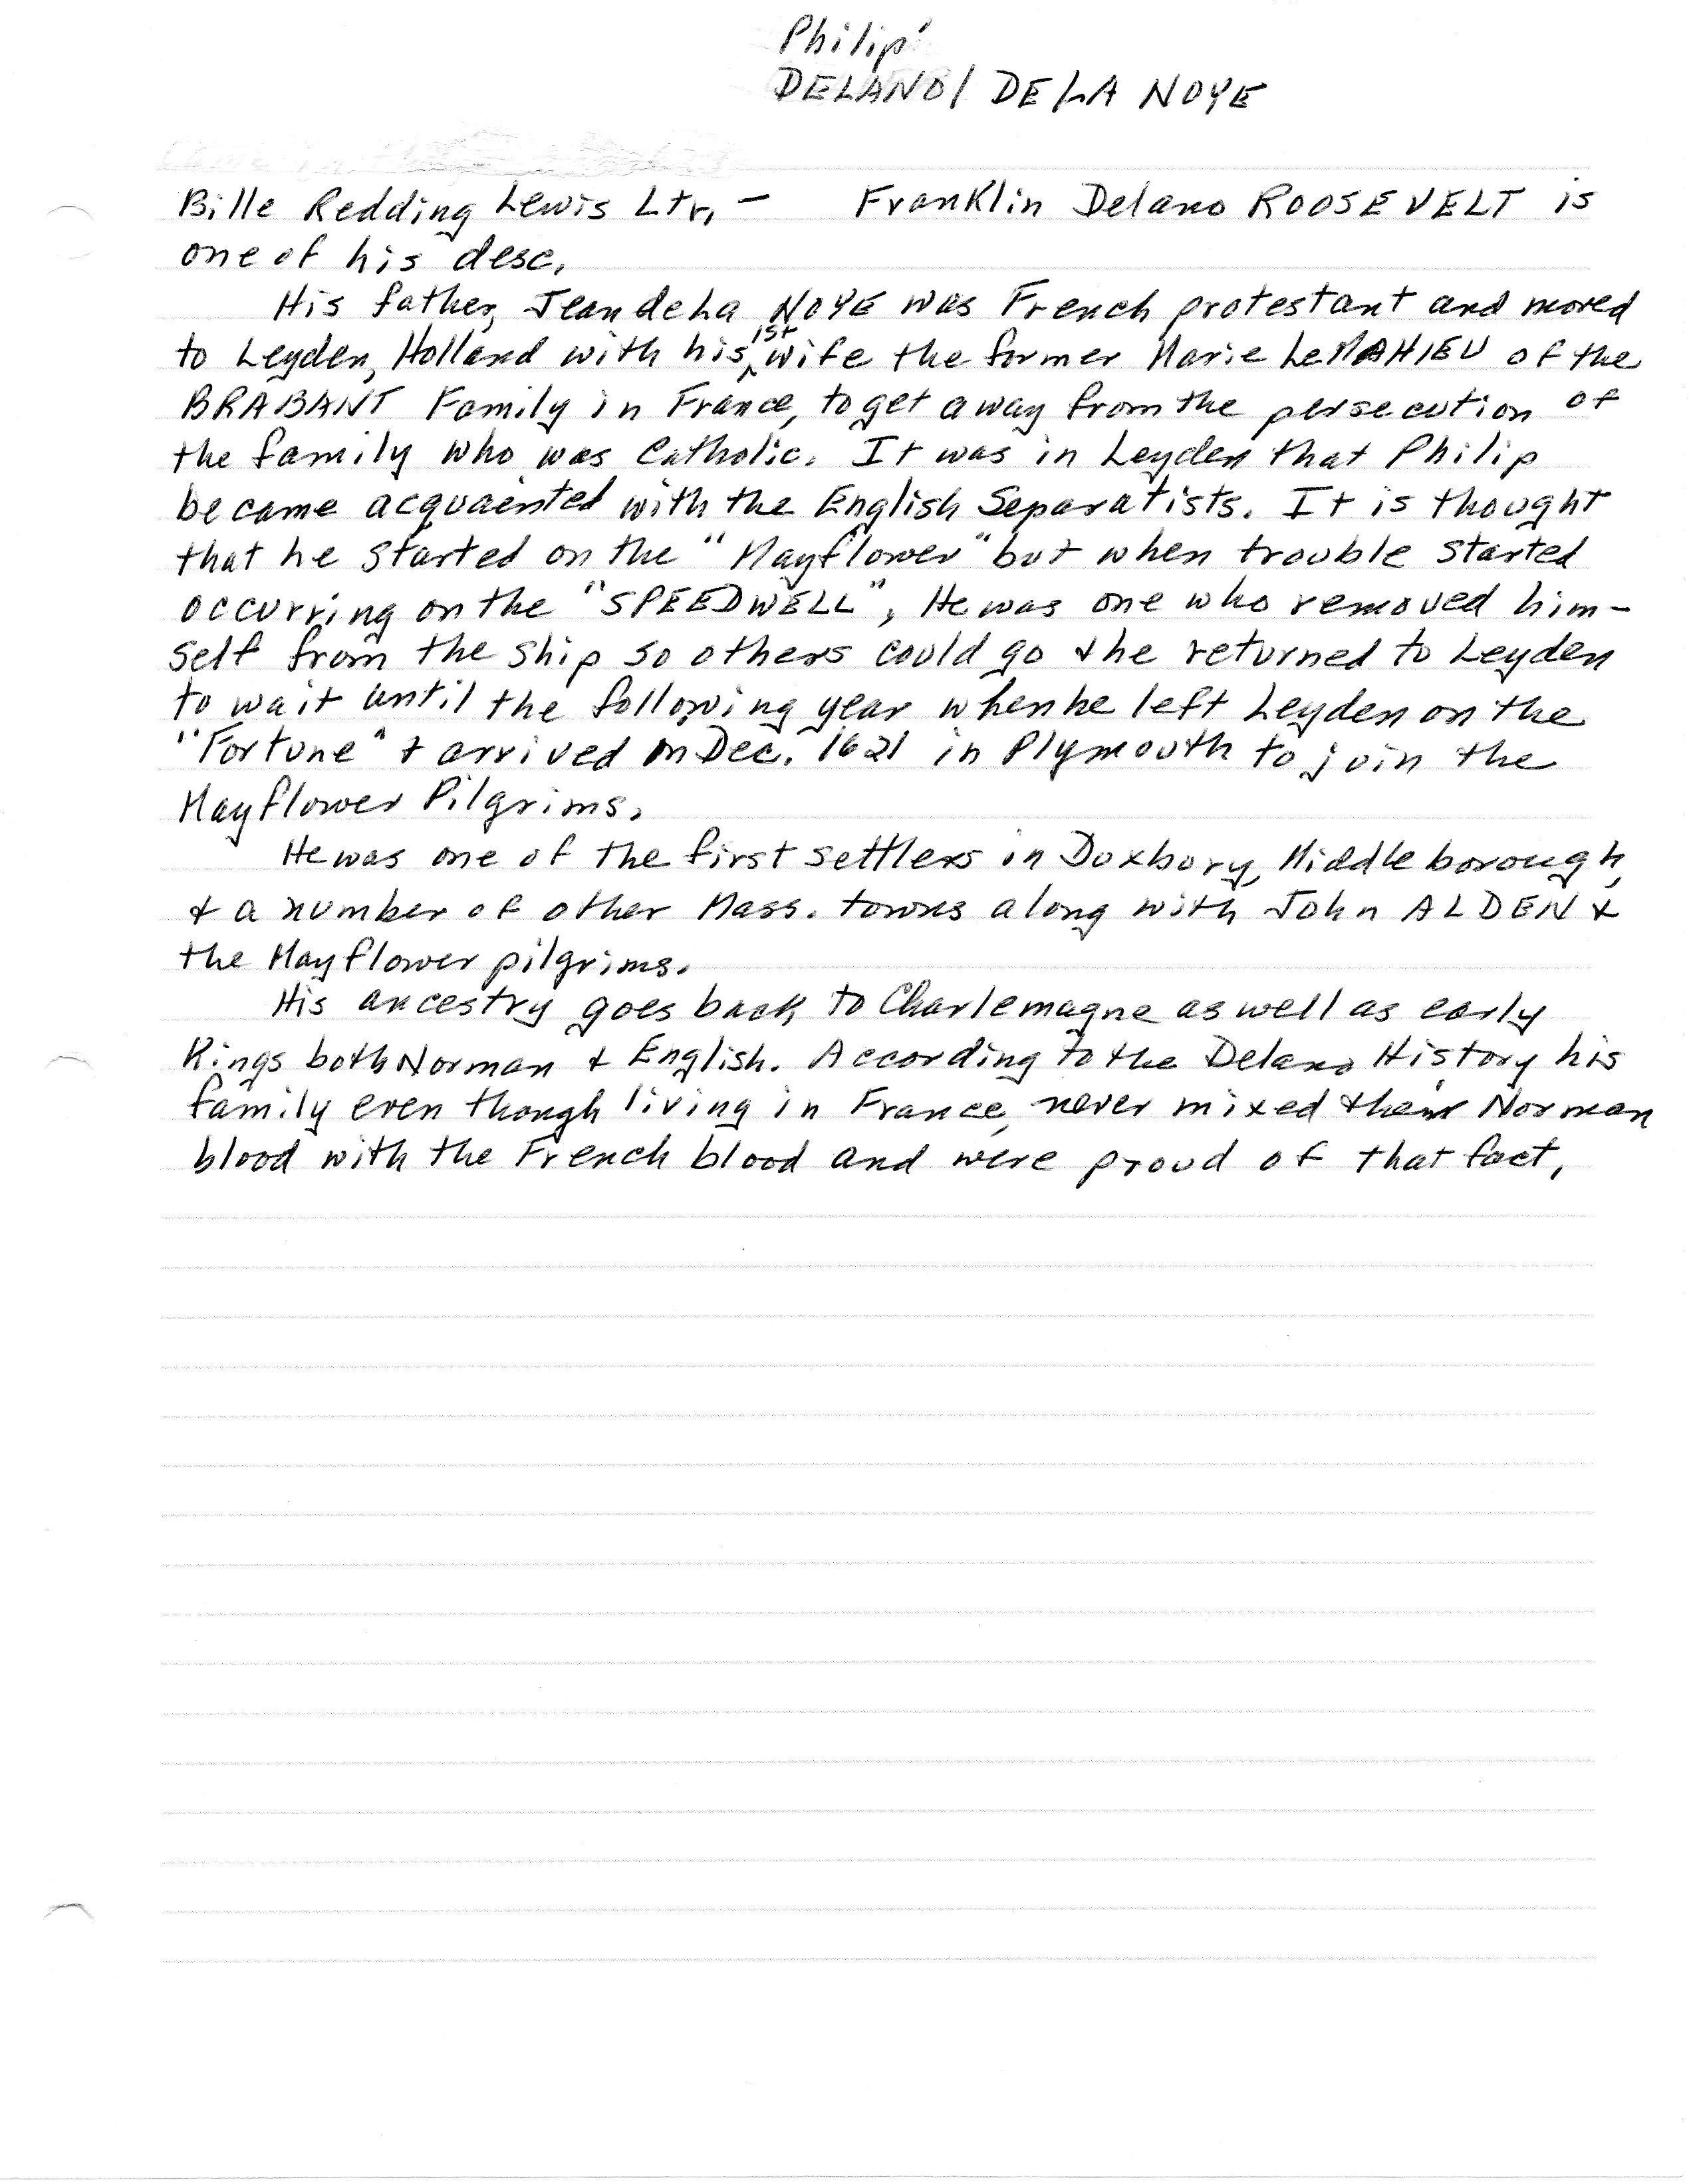 Philip
DELANO/ DE LA NOYE
Bille Redding Lewis Ltr. - Franklin Delano ROOSEVELT is
one of his desc.
His father, Jean de La NOYE was French protestant and moved
to Leyden, Holland with his 1st wife the former Marie LeMAHIEU of the
BRABANT Family in France, to get away from the persecution of
the family who was Catholic. It was in Leyden that Philip
became acquainted with the English Separatists. It is thought
that he started on the "Mayflower" but when trouble started
occurring on the "SPEEDWELL", He was one who removed him-
self from the ship so others could go & he returned to Leyden
to wait until the following year when he left Leyden on the
"Fortune" & arrived in Dec. 1621 in Plymouth to join the
Mayflower Pilgrims.
He was one of the first settlers in Duxbury, Middleborough,
& a number of other Mass. towns along with John ALDEN &
the Mayflower pilgrims.
His ancestry goes back to Charlemagne as well as early
Kings both Norman & English. According to the Delano History his
family even though living in France, never mixed their Norman
blood with the French blood and were proud of that fact.